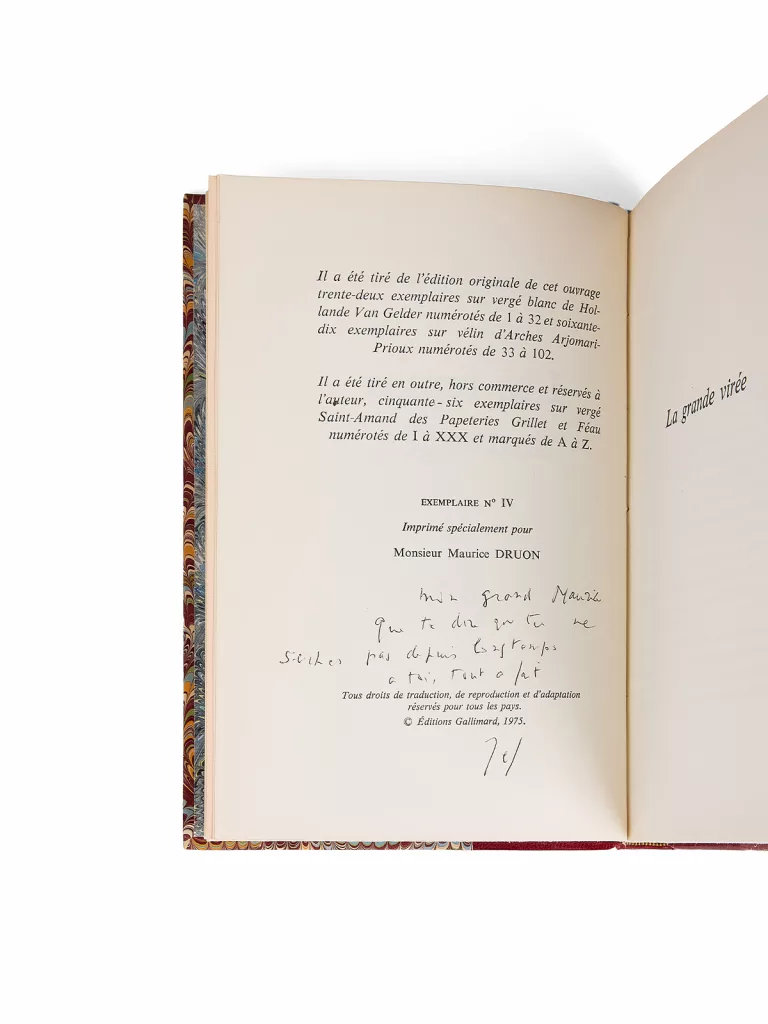 Il a été tiré de l'édition originale de cet ouvrage
trente-deux exemplaires sur vergé blanc de Hol-
lande Van Gelder numérotés de 1 à 32 et soixante-
dix exemplaires sur vélin d'Arches Arjomari-
Prioux numérotés de 33 à 102.
Il a été tiré en outre, hors commerce et réservés à
l'auteur, cinquante-six exemplaires sur vergé
Saint-Amand des Papeteries Grillet et Féau
numérotés de I à XXX et marqués de A à Z.
EXEMPLAIRE Nº IV
Imprimé spécialement pour
Monsieur Maurice DRUON
mon grand Maurice
Que te dire que tu ne
saches pas depuis longtemps
a toi, tout a fait
Tous droits de traduction, de reproduction et d'adaptation
réservés pour tous les pays.
© Éditions Gallimard, 1975.
Jef
La grande virée